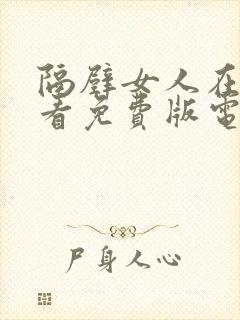 隔壁女人在
看免費版電
尸身人心